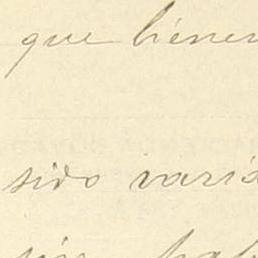 que bienen
sido varia
sin hab